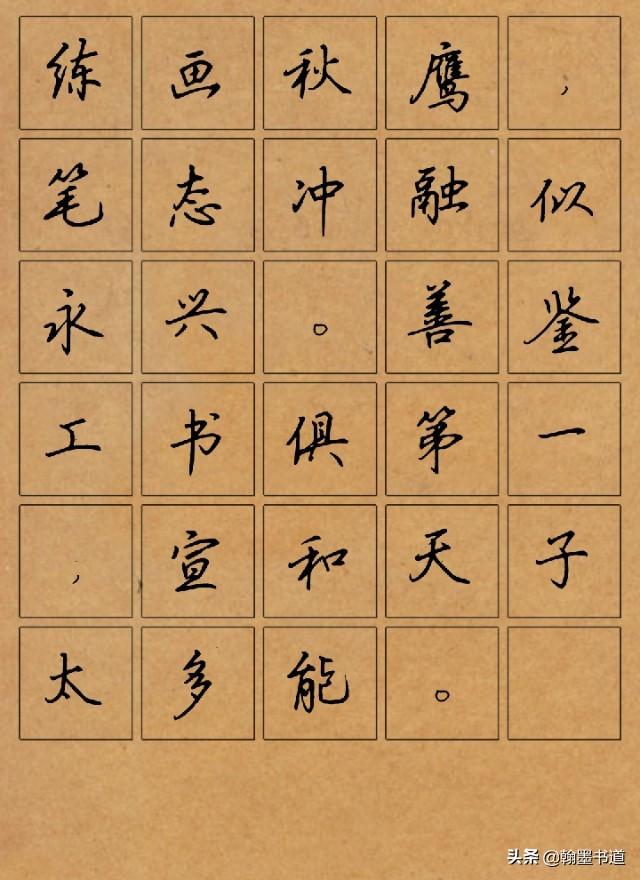 练画秋鹰，
笔态冲融似
永兴。善鉴
工书俱第一
，宣和天子
太多能。
头条 @翰墨书道